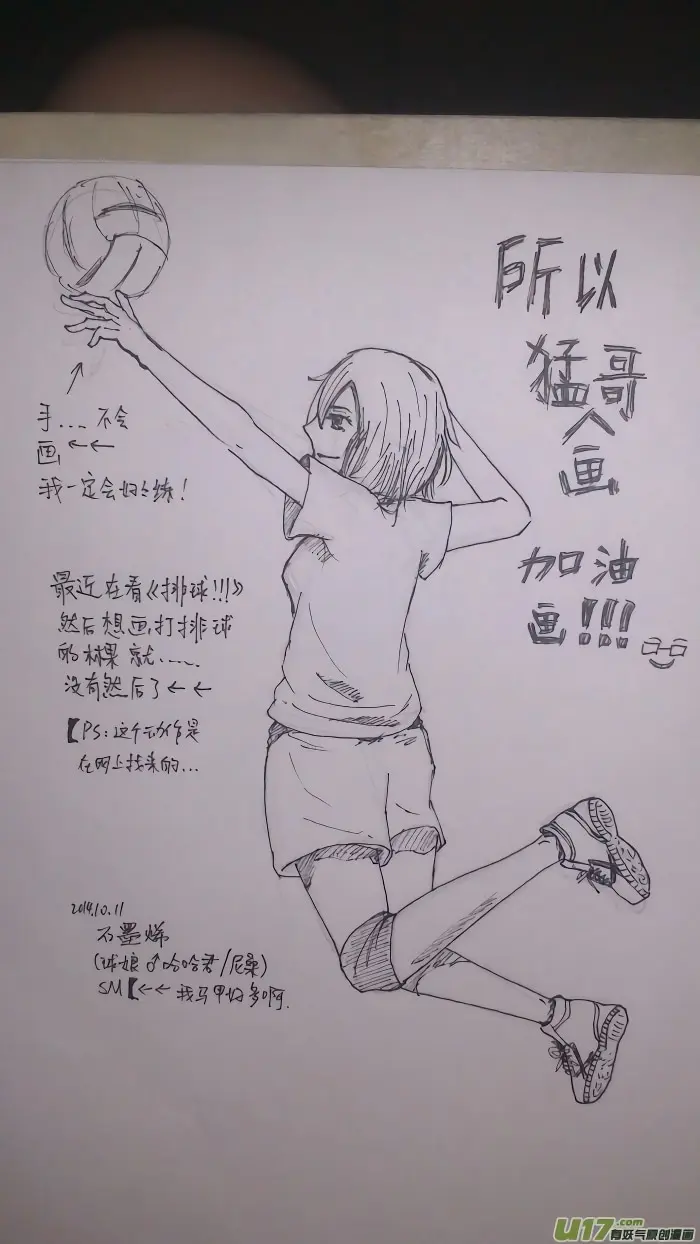 所以
猛哥
人
画
加油
画!!!
手.... 不会
画←←
我一定会好好练!
最近在看《排球!!!》
然后想画打排球
的林果就......
没有然后了← ←
【PS:这个动作是
在网上找来的...
2014.10.11
石墨烯
(球娘♂哈哈君/尼桑)
SM【←← 我马甲好多啊.
U17.com
有妖气原创漫画